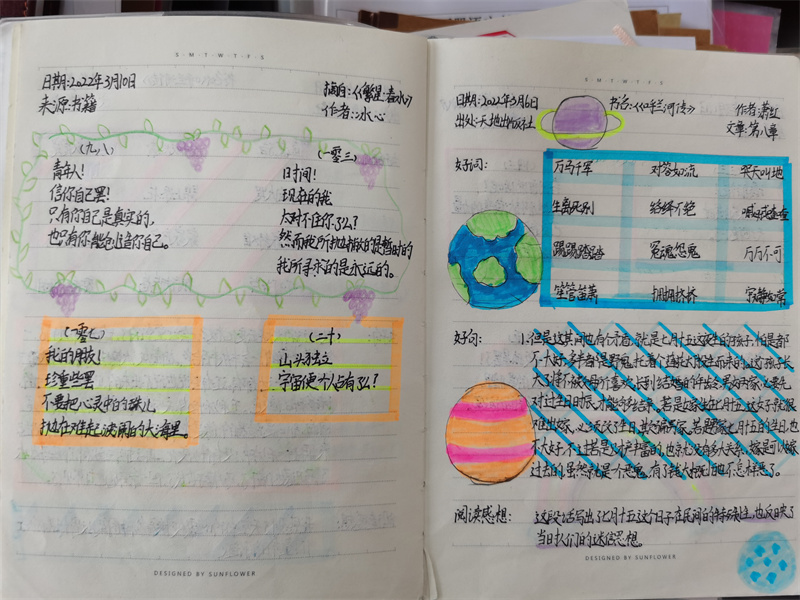 S-M-T-W-T-F-S
日期:2022年3月10日
摘自:《繁星·春水》
来源:书籍
作者:冰心
(九八)
青年人!
信你自己罢!
只有你自己是真实的,
也只有你能创造你自己。
(一零三)
时间!
现在的我
太对不住你么?
然而我所抛撇的是暂时的
我所寻求的是永远的。
(一零七)
我的朋友!
珍重些罢
不要把心灵中的珠儿
抛在难起波澜的大海里。
(二十)
山头独立
宇宙便个人占有了么?
DESIGNED BY SUNFLOWER
S-M-T-W-T-F-S
日期:2022年3月6日
书名:《呼兰河传》
作者:萧红
出处:天地出版社
文章:第八章
好词:
万马千军 对答如流 哭天叫地
生离死别 络绎不绝
冤魂怨鬼 万万不可
笙管笛箫 拥拥挤挤 寂静如常
好句:
1.但是这其间也有矛盾,就是七月十五这夜生的孩子,怕是都
不大好,多半都是野鬼托着个莲花灯投生而来的。这个孩子长
大了将不被父母所喜欢,长到结婚的年龄,男女两家必要先
对过生日时辰,才能够结亲。若是女家生在七月十五,这女子就很
难出嫁,必须改了生日,欺骗男家。若是男家七月十五的生日,也
不大好,不过若是财产丰富的,也就没有多大关系,嫁是可以嫁
过去的,虽然就是一个恶鬼,有了钱大概怕也不怎样恶了。
阅读感想:
这段话写出了七月十五这个日子在民间的特殊性,也反映了
当时人们的迷信思想.
DESIGNED BY SUNFLOWER